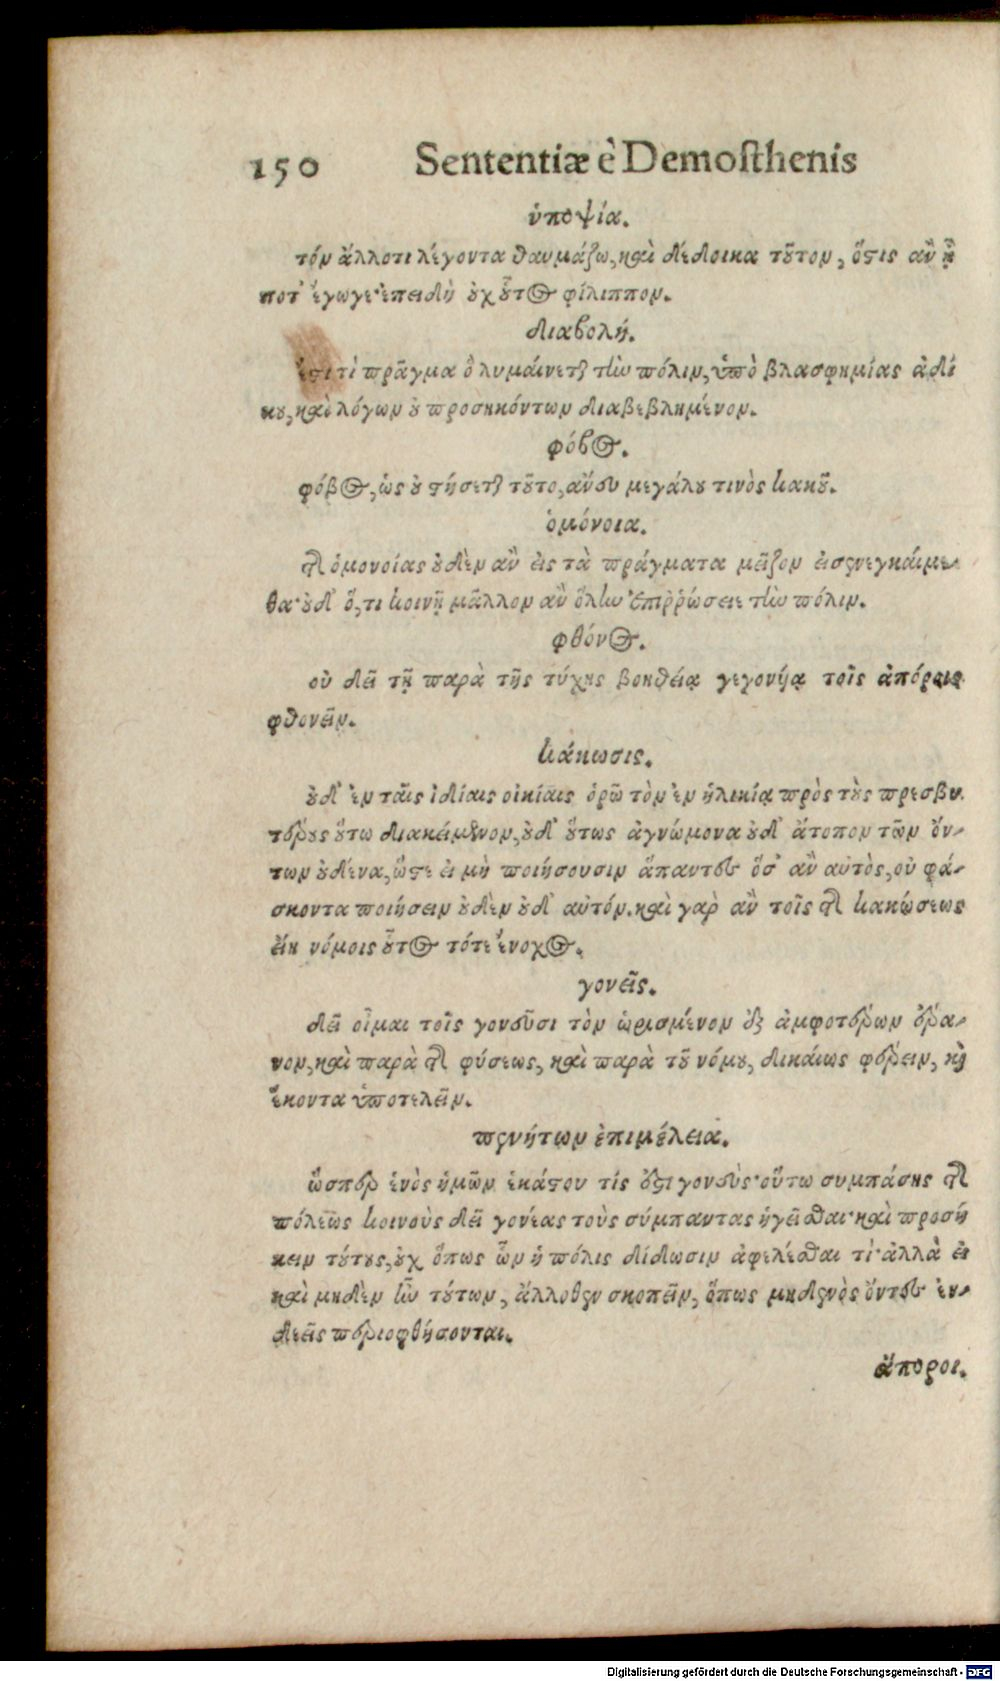 150 Sententiæ è Demosthenis
ὑποψία.
τόν ἄλλοτι λέγοντα θαυμάζω, καὶ δέδοικα τοῦτον, ὅστις ἂν ᾖ
ποτ' ἔγωγε· ἐπειδὴ οὐχ οὗτος φίλιππον.
διαβολή.
ἔστι τὶ πρᾶγμα ὃ λυμαίνεται τὴν πόλιν, ὑπὸ βλασφημίας ἀδί
κου, καὶ λόγων οὐ προσηκόντων διαβεβλημένον.
φόβος.
φόβος, ὡς οὐ στήσεται τοῦτο, ἄνευ μεγάλου τινὸς κακοῦ.
ὁμόνοια.
τῆς ὁμονοίας οὐδὲν ἂν εἰς τὰ πράγματα μεῖζον εἰσενεγκαίμε-
θα· οὐδ' ὅ, τι κοινῇ μᾶλλον ἂν ὅλην ἐπιῤῥώσειε τὴν πόλιν.
φθόνος.
οὐ δεῖ τῇ παρὰ τῆς τύχης βοηθείᾳ γεγονυίᾳ τοῖς ἀπόροις
φθονεῖν.
κάκωσις.
οὐδ' ἐν ταῖς ἰδίαις οἰκίαις ὁρῶ τὸν ἐν ἡλικίᾳ πρὸς τοὺς πρεσβυ
τέρους οὕτω διακείμενον, οὐδ' οὕτως ἀγνώμονα οὐδ' ἄτοπον τῶν ὄν-
των οὐδένα, ὥστε εἰ μὴ ποιήσουσιν ἅπαντες ὅσ' ἂν αὐτὸς, οὐ φά-
σκοντα ποιήσειν οὐδὲν οὐδ' αὐτόν. καὶ γὰρ ἂν τοῖς τῆς κακώσεως
εἴη νόμοις οὗτος τότε ἔνοχος.
γονεῖς.
δεῖ οἶμαι τοῖς γονεῦσι τὸν ὡρισμένον ἐξ ἀμφοτέρων ἔρα-
νον, καὶ παρὰ τῆς φύσεως, καὶ παρὰ τοῦ νόμου, δικαίως φέρειν, καὶ
ἑκόντα ὑποτελεῖν.
πενήτων ἐπιμέλεια.
ὥσπερ ἑνὸς ἡμῶν ἑκάστου τίς ἐστι γονεὺς· οὕτω συμπάσης τῆς
πόλεως κοινοὺς δεῖ γονέας τοὺς σύμπαντας ἡγεῖσθαι· καὶ προσή
κειν τούτους, οὐχ ὅπως ὧν ἡ πόλις δίδωσιν ἀφελέσθαι τὶ· ἀλλὰ εἰ
καὶ μηδὲν ἦν τούτων, ἄλλοθεν σκοπεῖν, ὅπως μηδενὸς ὄντες ἐν-
δεεῖς περιοφθήσονται.
ἄποροι.
Digitalisierung gefördert durch die Deutsche Forschungsgemeinschaft - DFG